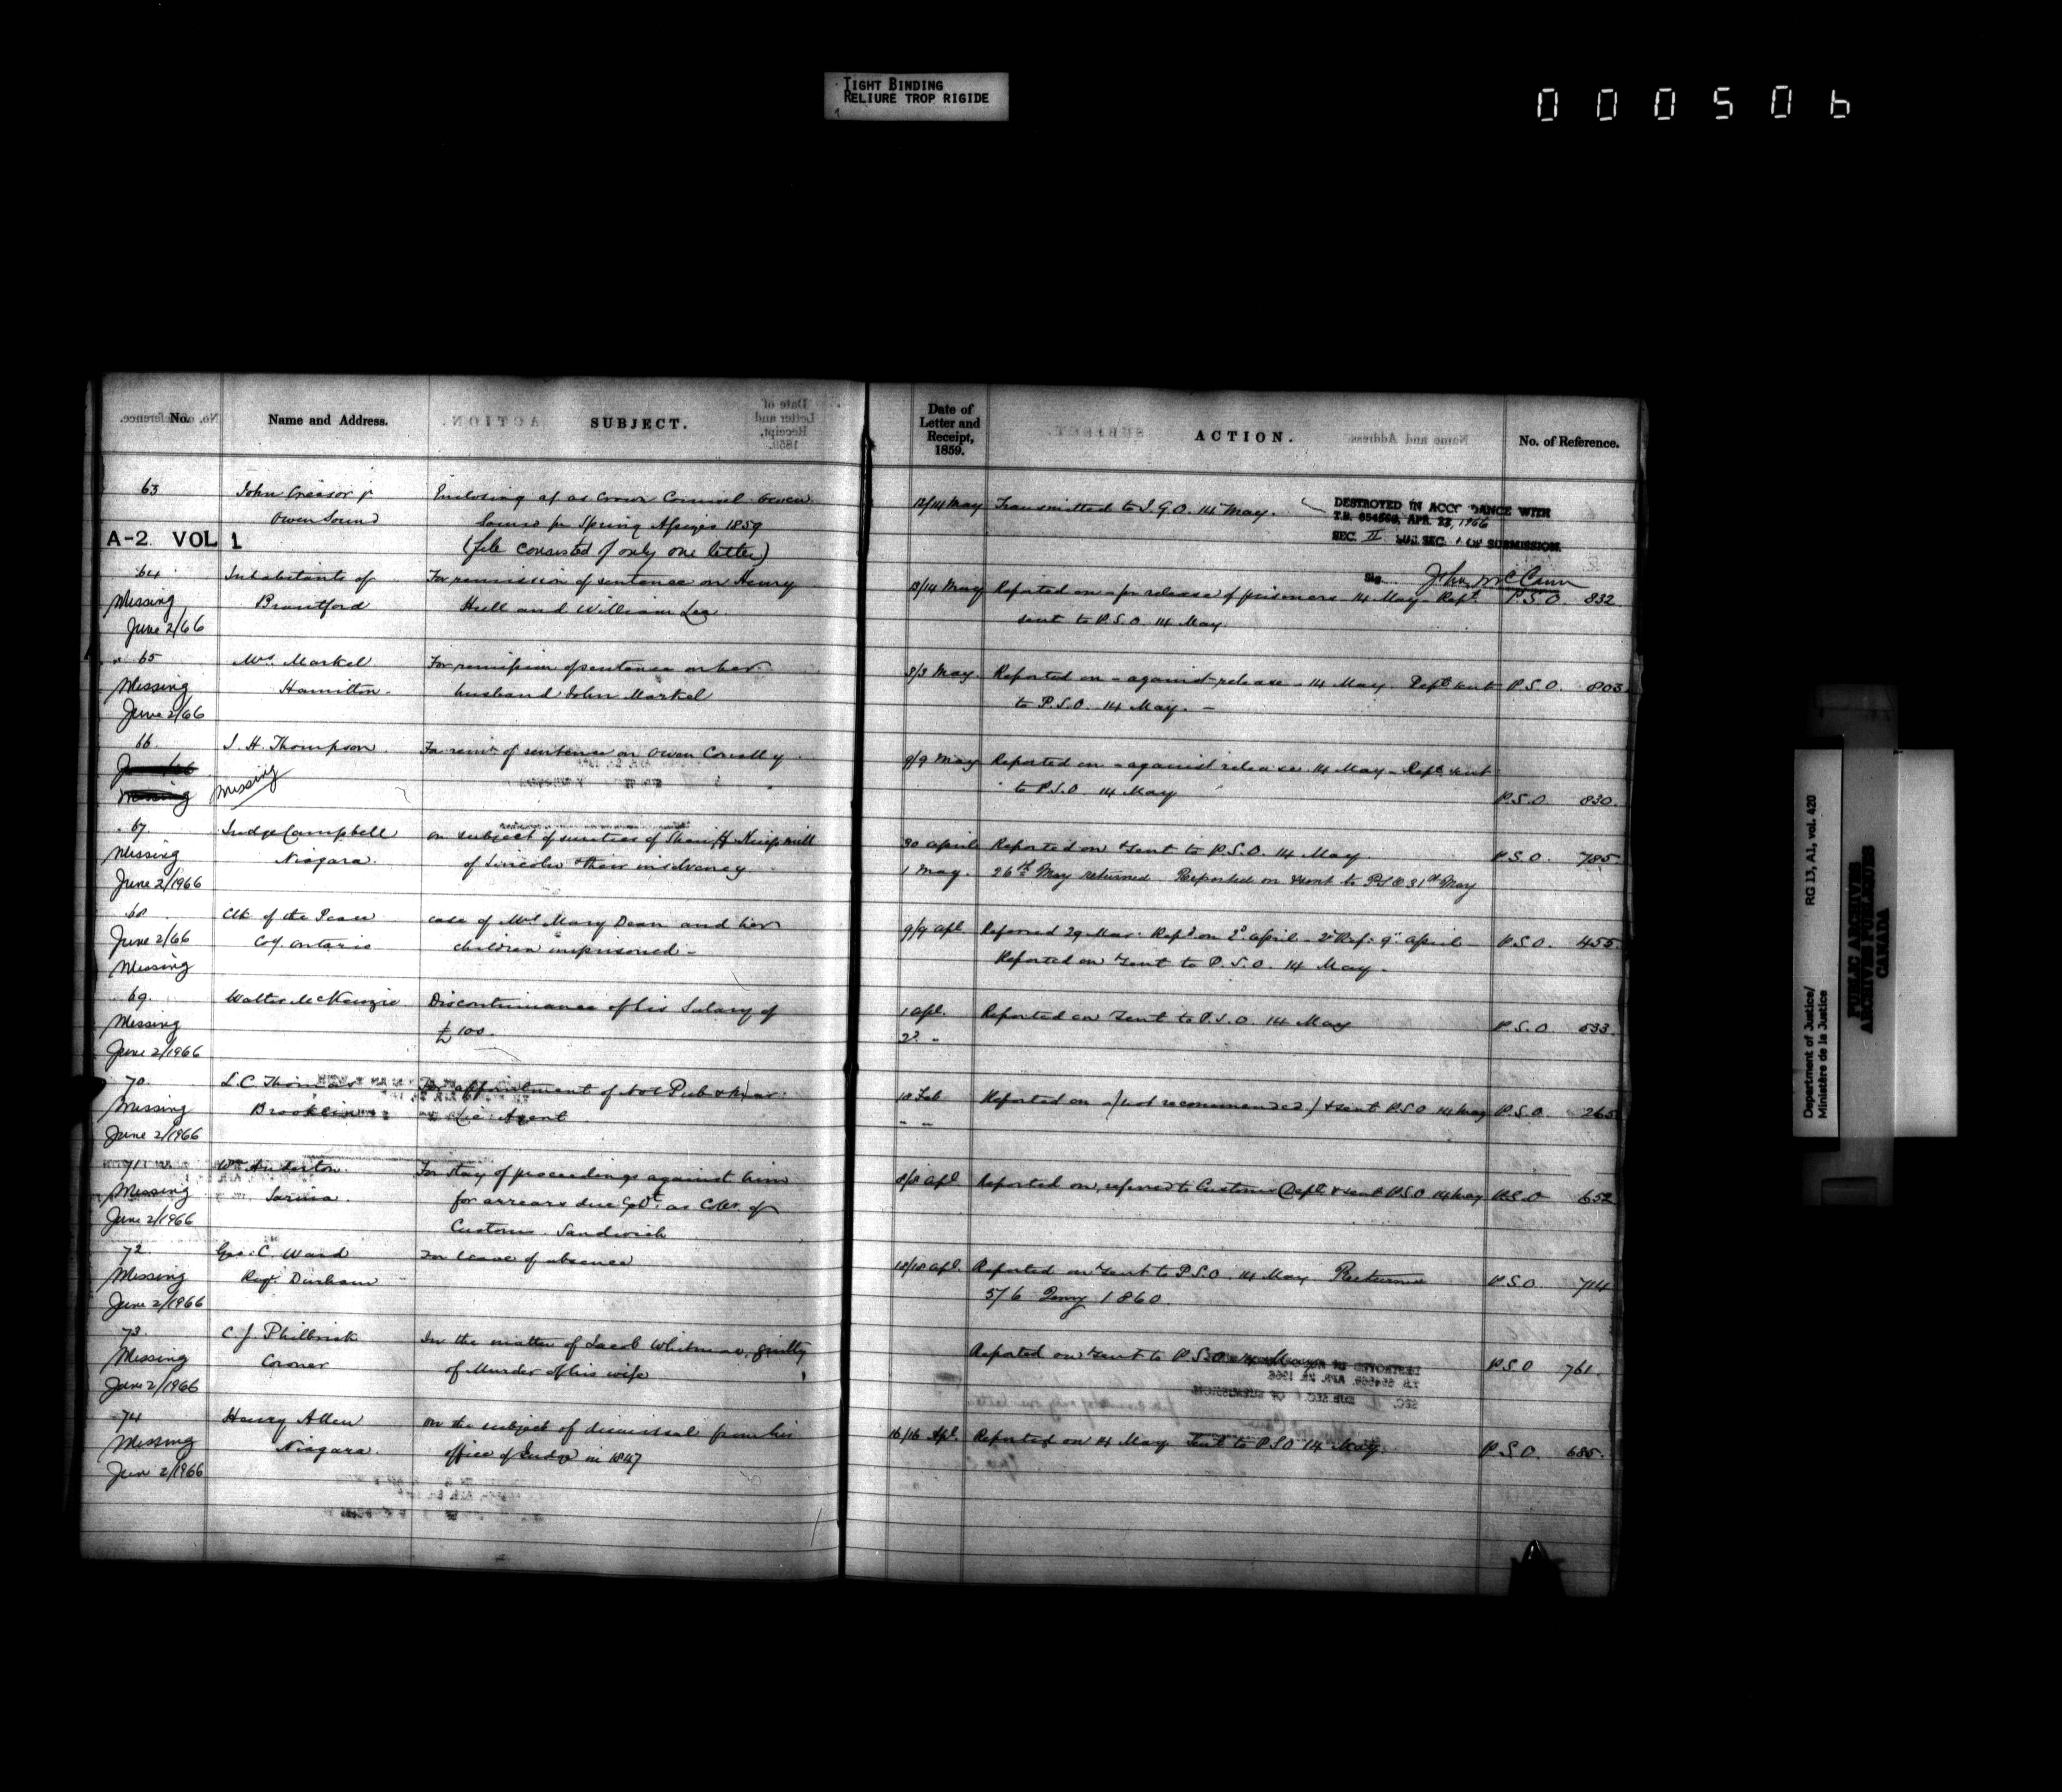 TIGHT BINDING
RELIURE TROP RIGIDE
000506
No. Name and Address. SUBJECT. Date of Letter and Receipt, 1859. ACTION. No. of Reference.
63 John Creasor Enclosing as Crown Counsel Owen 12/14 May Transmitted to I.G.O. 14 May. DESTROYED IN ACCORDANCE WITH
Owen Sound Sound for Spring Assizes 1859 T.B. 654569, APR. 22, 1966
A-2 VOL 1 (file consisted of only one letter) SEC. II SUB. SEC. OF SUBMISSION.
Sig. John McCann
64 Inhabitants of For remission of sentence on Henry 13/14 May Reported on - for release of prisoners - 14 May - Rept. P.S.O. 832
Missing Brantford Hull and William Lee sent to P.S.O. 14 May.
June 2/66
65 Mrs. Markel For remission of sentence on her 3/3 May Reported on - against release - 14 May. Rept. sent P.S.O. 803
Missing Hamilton. husband John Markel to P.S.O. 14 May. -
June 2/66
66 J. H. Thompson For remn. of sentence on Owen Conolly 9/9 May Reported on - against release 14 May - Rept. sent
Missing to P.S.O. 14 May P.S.O. 830.
67 Judge Campbell on subject of sureties of Sheriff 30 April Reported on & sent to P.S.O. 14 May. P.S.O. 785
Missing Niagara. of Lincoln & their insolvency 1 May. 26th May returned. Reported on & sent to P.S.O. 31st May
June 2/1966
68 Clk of the Peace case of Mrs. Mary Dean and her 9/9 Apl. Referred 29 Mar. Repd. on 2d. April. 2d Ref. 9 April P.S.O. 455
June 2/66 Coy. Ontario children imprisoned - Reported on & sent to P.S.O. 14 May.
Missing
69. Walter McKenzie Discontinuance of his Salary of 1 Apl. Reported on & sent to P.S.O. 14 May P.S.O. 533
Missing £100. 2d. "
June 2/1966
70. L. C. Thomas For appointment of Not Pub & Mar 18 Feb Reported on (not recommended) & sent P.S.O. 14 May P.S.O. 265
Missing Brooklin Lic Agent " "
June 2/1966
71 Wm Anderton. For stay of proceedings against him 8/8 Apl. Reported on, referred to Customs Dept. & sent P.S.O. 14 May P.S.O. 652
Missing Sarnia. for arrears due Govt. as Coller. of
June 2/1966 Customs Sandwich
72 Geo. C. Ward For leave of absence 18/18 Apl. Reported on & sent to P.S.O. 14 May Returned P.S.O. 714
Missing Regr. Durham 5/6 Jany 1860.
June 2/1966
73. C. J. Philbrick In the matter of Jacob Whitmore, guilty Reported on & sent to P.S.O. 14 May P.S.O. 761.
Missing Coroner of Murder of his wife
June 2/1966
74 Henry Allen on the subject of dismissal from his 16/16 Apl. Reported on 14 May Sent to P.S.O. 14 May. P.S.O. 685.
Missing Niagara. office of Judge in 1847
Jun 2/1966
Department of Justice/
Ministère de la Justice
RG 13, A1, vol. 420
PUBLIC ARCHIVES
ARCHIVES PUBLIQUES
CANADA